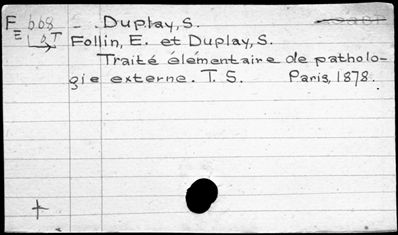 F 668 - Duplay, S.
E Follin, E. et Duplay, S.
Traité élémentaire de patholo-
gie externe. T. 5. Paris, 1878.